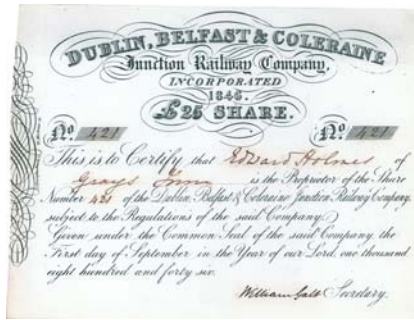 DUBLIN, BELFAST & COLERAINE
Junction Railway Company,
INCORPORATED
1846.
£25 SHARE.
No 421 No 421
This is to Certify that Edward Holmes of
Grays Inn is the Proprietor of the Share
Number 421 of the Dublin, Belfast & Coleraine Junction Railway Company,
subject to the Regulations of the said Company.
Given under the Common Seal of the said Company, the
First day of September in the Year of our Lord, one thousand
eight hundred and forty six.
William Galt Secretary.